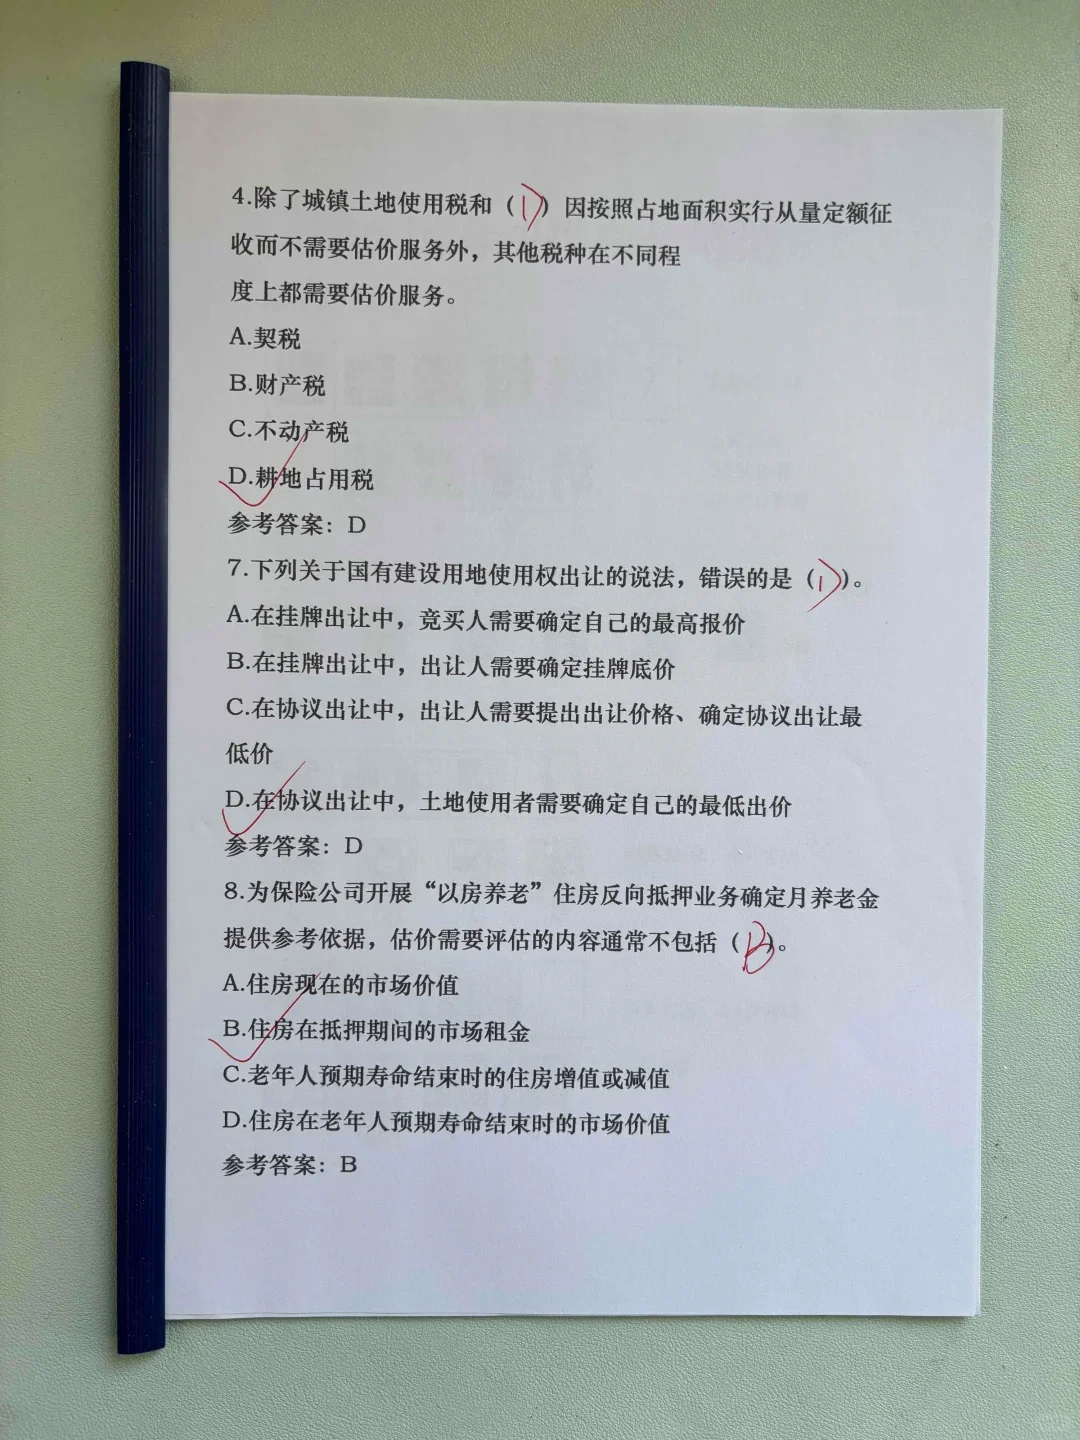 4.除了城镇土地使用税和（D）因按照占地面积实行从量定额征
收而不需要估价服务外，其他税种在不同程
度上都需要估价服务。
A.契税
B.财产税
C.不动产税
D.耕地占用税
参考答案：D
7.下列关于国有建设用地使用权出让的说法，错误的是（D）。
A.在挂牌出让中，竞买人需要确定自己的最高报价
B.在挂牌出让中，出让人需要确定挂牌底价
C.在协议出让中，出让人需要提出出让价格、确定协议出让最
低价
D.在协议出让中，土地使用者需要确定自己的最低出价
参考答案：D
8.为保险公司开展“以房养老”住房反向抵押业务确定月养老金
提供参考依据，估价需要评估的内容通常不包括（B）。
A.住房现在的市场价值
B.住房在抵押期间的市场租金
C.老年人预期寿命结束时的住房增值或减值
D.住房在老年人预期寿命结束时的市场价值
参考答案：B